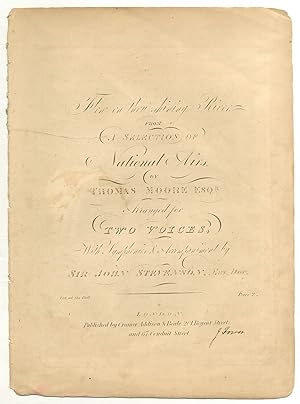 Flow on thou shining River
FROM
A SELECTION OF
National Airs,
BY
THOMAS MOORE ESQR.
Arranged for
TWO VOICES,
With Symphonies & Accompaniments by
SIR JOHN STEVENSON, Mus. Doc.
Ent. at Sta. Hall
Price 2
LONDON.
Published by Cramer Addison & Beale, 201 Regent Street,
and 67 Conduit Street.